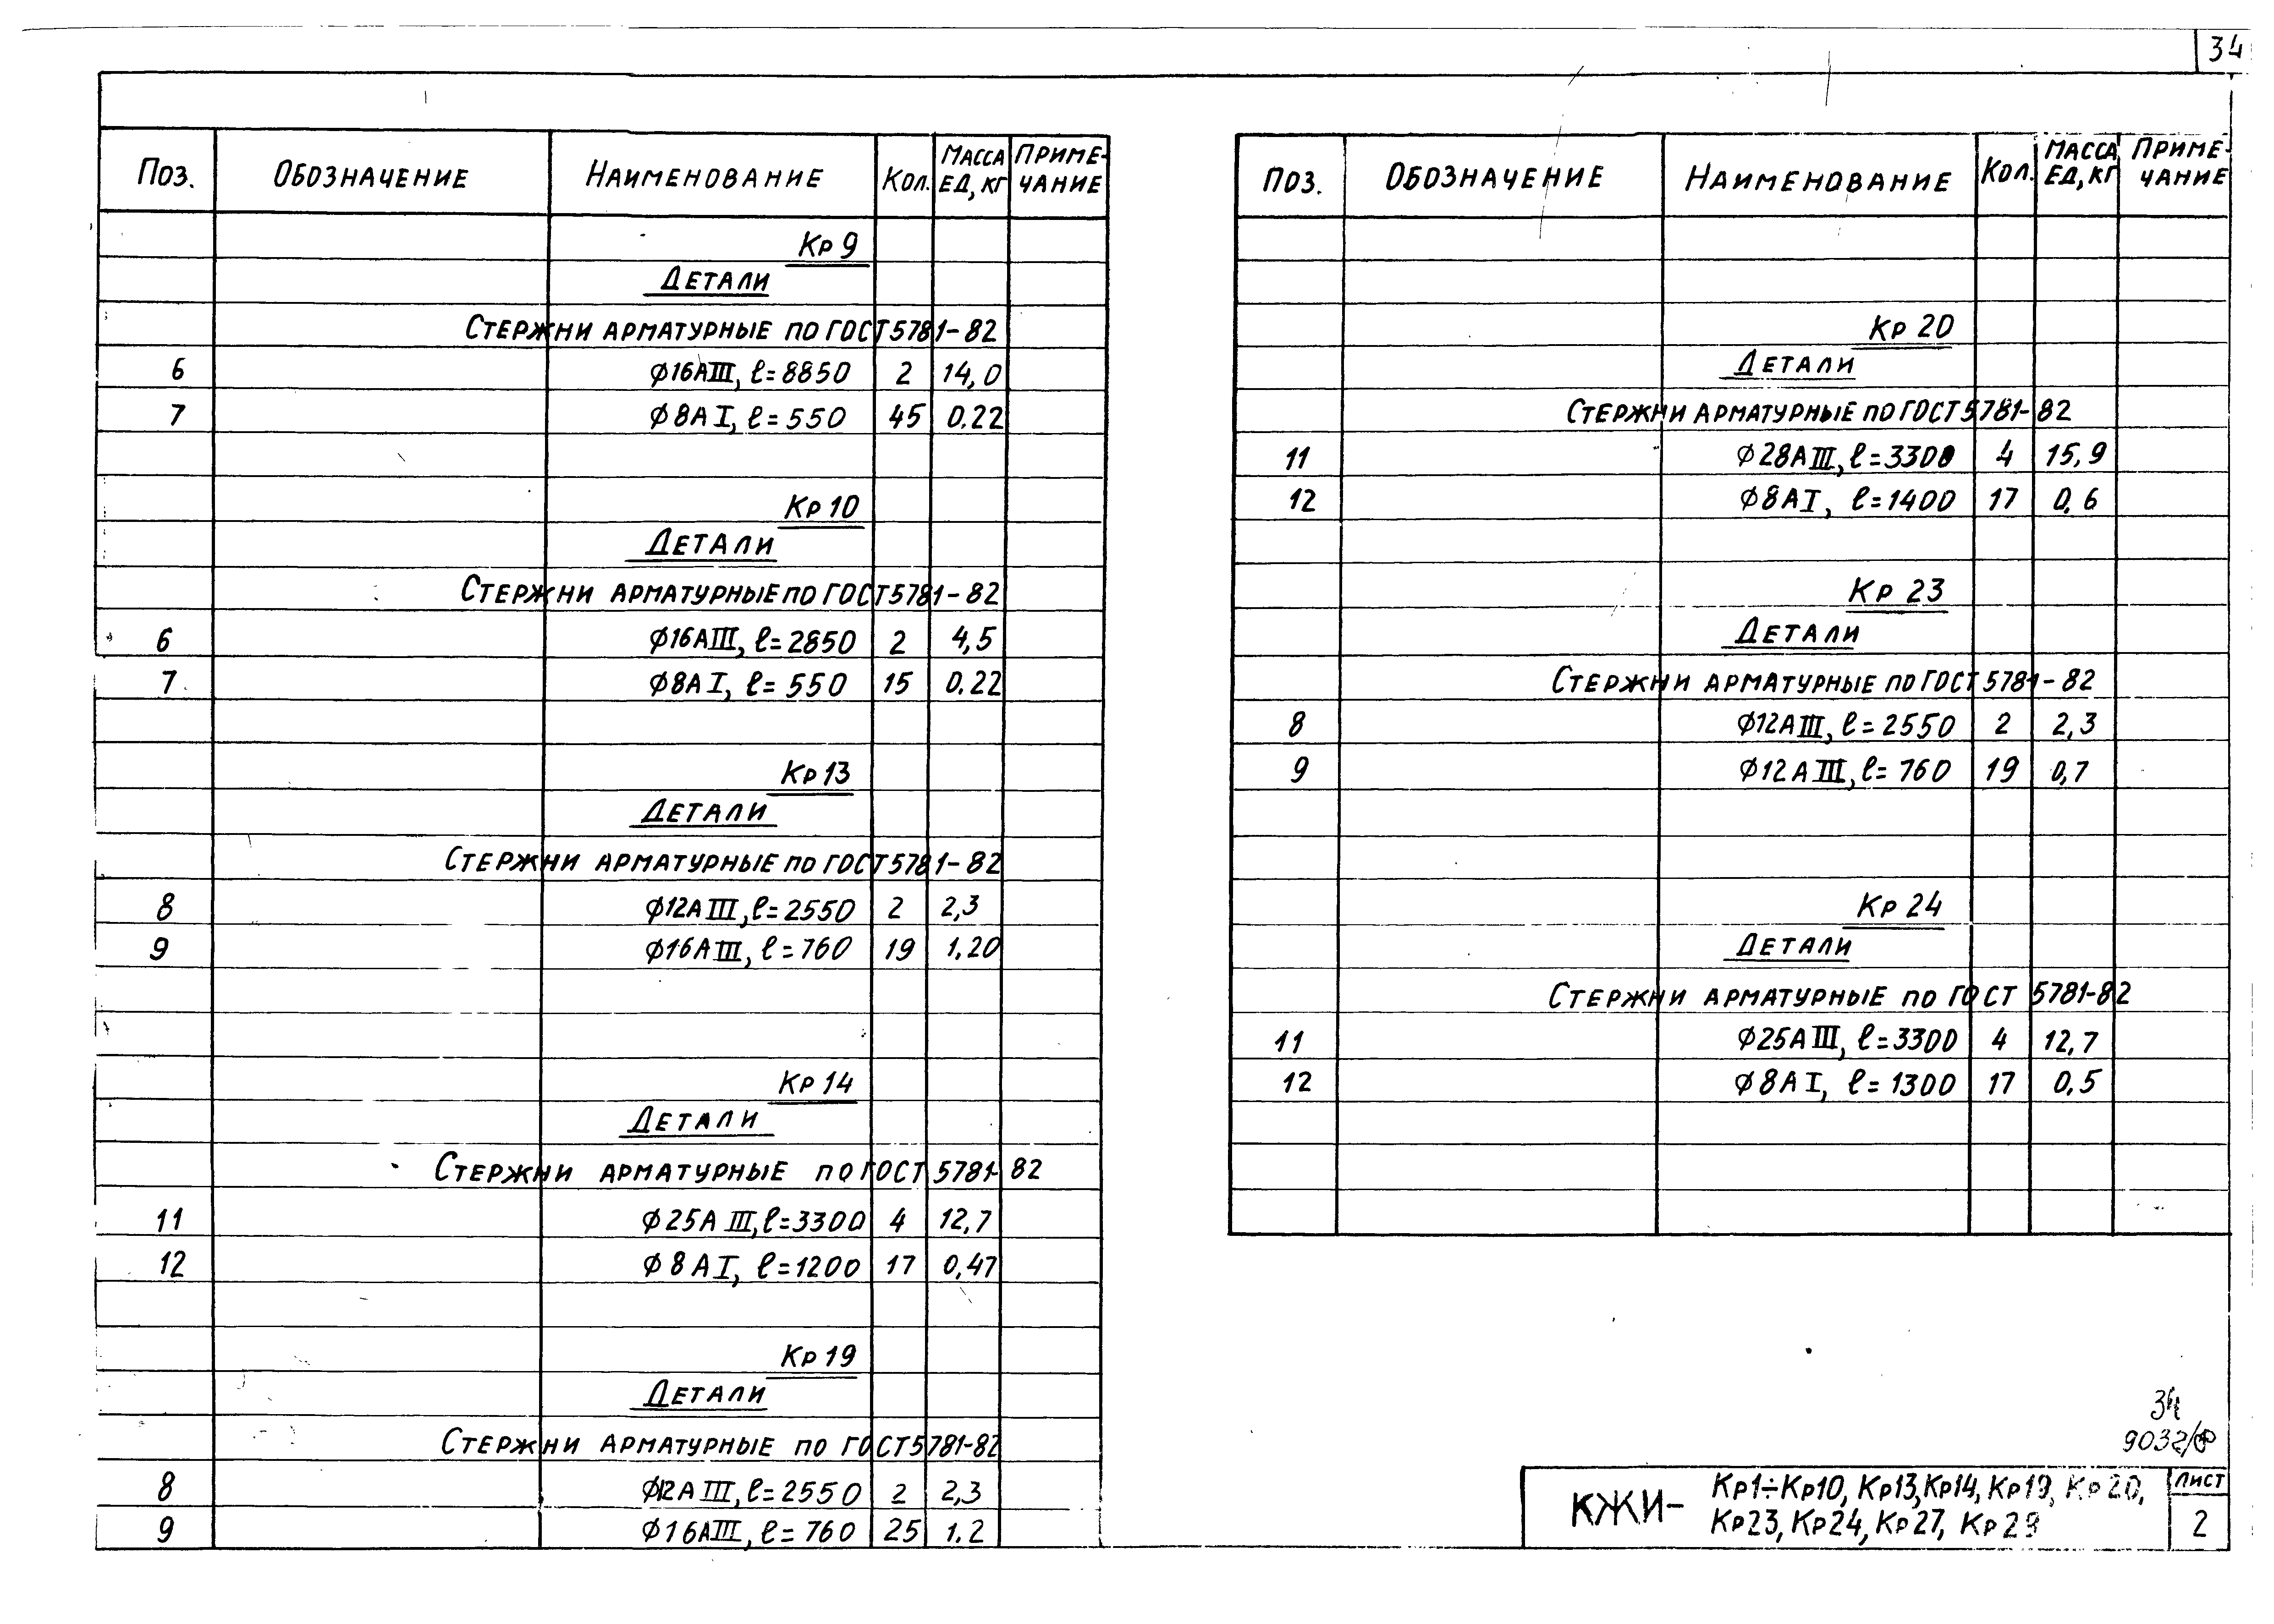 34
Поз. Обозначение Наименование Кол. Масса ед, кг Приме-чание
Кр 9
Детали
Стержни арматурные по ГОСТ 5781-82
6 ϕ16АIII, ℓ=8850 2 14,0
7 ϕ8АI, ℓ=550 45 0.22
Кр 10
Детали
Стержни арматурные по ГОСТ 5781-82
6 ϕ16АIII, ℓ=2850 2 4,5
7 ϕ8АI, ℓ=550 15 0.22
Кр 13
Детали
Стержни арматурные по ГОСТ 5781-82
8 ϕ12АIII, ℓ=2550 2 2,3
9 ϕ16АIII, ℓ=760 19 1,20
Кр 14
Детали
Стержни арматурные по ГОСТ 5781-82
11 ϕ25АIII, ℓ=3300 4 12,7
12 ϕ8АI, ℓ=1200 17 0,47
Кр 19
Детали
Стержни арматурные по ГОСТ 5781-82
8 ϕ12АIII, ℓ=2550 2 2,3
9 ϕ16АIII, ℓ=760 25 1.2
Поз. Обозначение Наименование Кол. Масса ед, кг Приме-чание
Кр 20
Детали
Стержни арматурные по ГОСТ 5781-82
11 ϕ28АIII, ℓ=3300 4 15,9
12 ϕ8АI, ℓ=1400 17 0,6
Кр 23
Детали
Стержни арматурные по ГОСТ 5781-82
8 ϕ12АIII, ℓ=2550 2 2,3
9 ϕ12АIII, ℓ=760 19 0,7
Кр 24
Детали
Стержни арматурные по ГОСТ 5781-82
11 ϕ25АIII, ℓ=3300 4 12,7
12 ϕ8АI, ℓ=1300 17 0,5
34
КЖИ- Кр1÷Кр10, Кр13, Кр14, Кр19, Кр20,
Кр23, Кр24, Кр27,
Лист
2